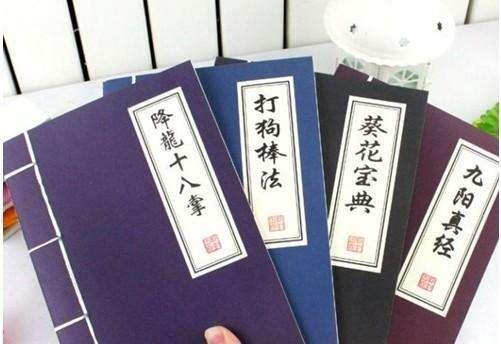 降龍十八掌
打狗棒法
葵花宝典
九阳真经